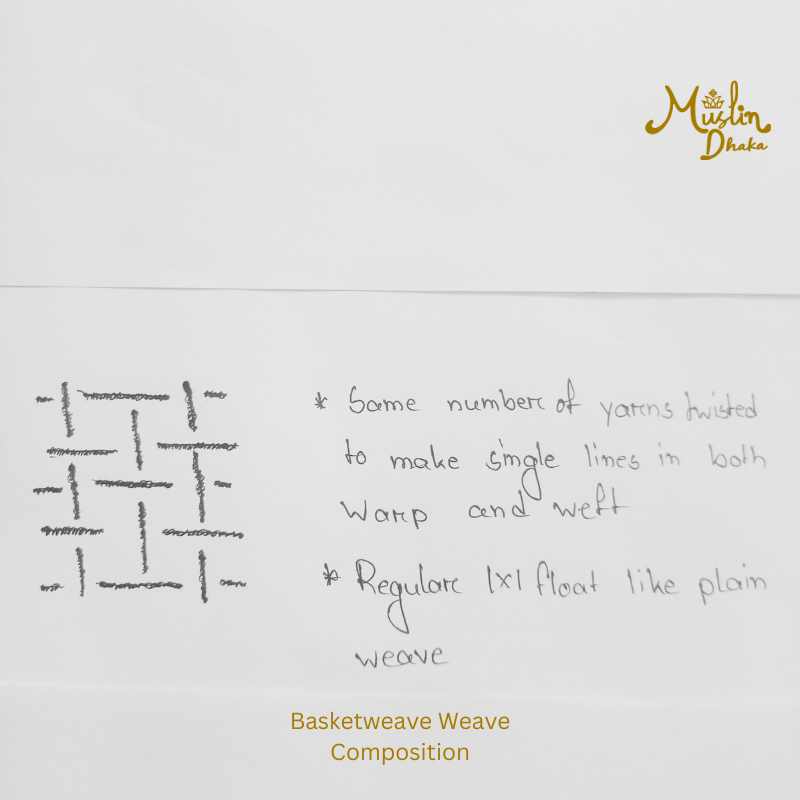 Muslin
Dhaka
* Same number of yarns twisted
to make single lines in both
warp and weft
* Regular 1x1 float like plain
weave
Basketweave Weave
Composition